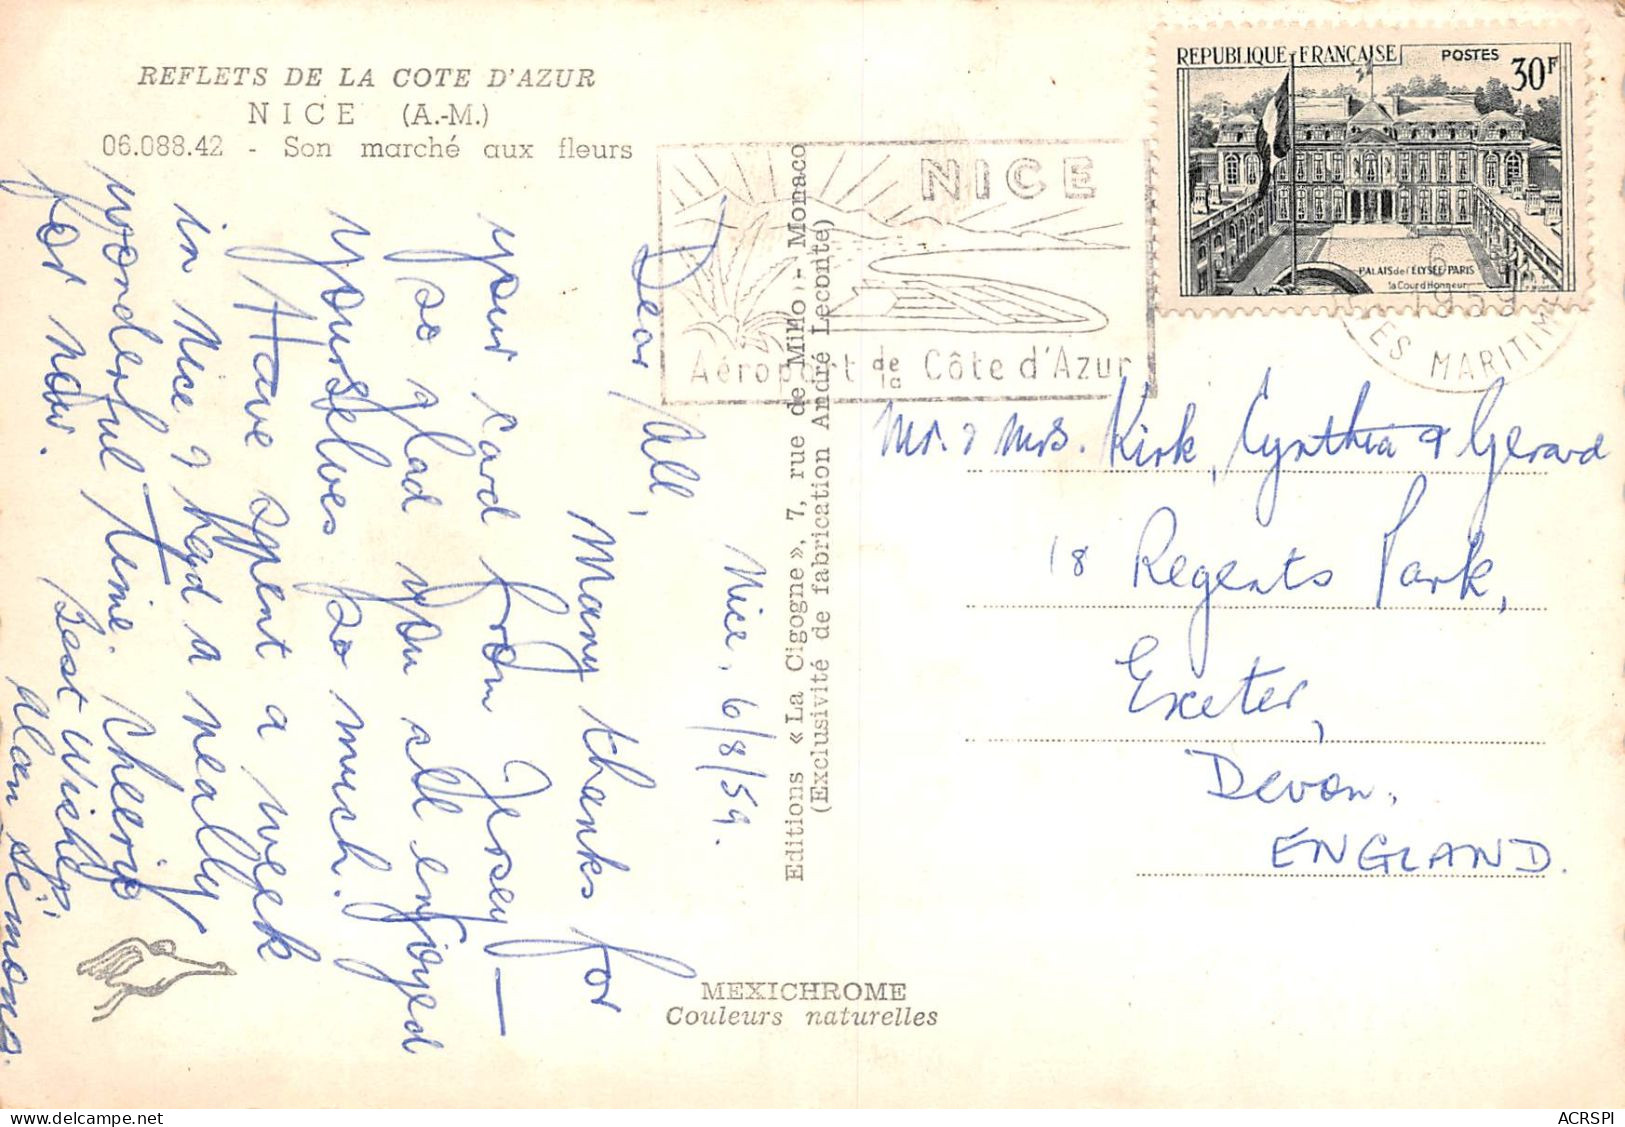 REFLETS DE LA COTE D'AZUR
NICE (A.-M.)
06.088.42 - Son marché aux fleurs
Nice, 6/8/59.
Dear All,
Many thanks for
your card from Jersey —
so glad you all enjoyed
yourselves so much.
Have spent a week
in Nice & had a really
wonderful time. Cheerio
for now.
Best wishes,
Alan Semons.
Editions « La Cigogne », 7, rue de Millo - Monaco
(Exclusivité de fabrication André Leconte)
MEXICHROME
Couleurs naturelles
NICE
Aéroport de la Côte d'Azur
REPUBLIQUE FRANÇAISE POSTES 30F
PALAIS de l'ELYSÉE PARIS
la Cour d'Honneur
6
1959
ES MARITIM
Mr. & Mrs. Kirk, Cynthia & Gerard
18 Regents Park,
Exeter,
Devon.
ENGLAND.
ACRSPI